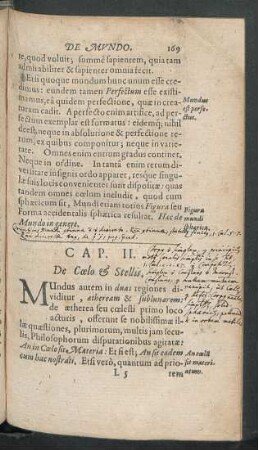 DE MVNDO. 169
te, quod voluit, summè sapientem, quia tam
admirabiliter & sapienter omnia fecit.
Etsi quoque mondum hunc unum esse cre-
dimus: eundem tamen Perfectum esse existi-
mamus, eâ quidem perfectione, quæ in crea-
turam cadit. A perfecto enim artifice, ad per-
fectum exemplar est formatus: eidemq; nihil
deest, neque in absolutione & perfectione re-
rum, ex quibus componitur; neque in varie-
tate. Omnes enim entium gradus continet.
Neque in ordine. In tantâ enim rerum di-
versitate insignis ordo apparet, resque singu-
læ suis locis convenienter sunt dispositæ: quas
tandem omnes cœlum includit. A quo sicum
sphæricum sit, Mundi etiam totius Figura seu
Forma accidentalis sphærica resultat. Hæc de
Mundo in genere.
Mundus
est perfe-
ctus.
Figura
mundi
sphærica.
CAP. II.
De Cœlo & Stellis.
MUndus autem in duas regiones di-
viditur, ætheream & sublunarem:
de ætherea seu cœlesti primo loco
acturis, offerunt se nobilissimæ il-
læ quæstiones, plurimorum, multis jam secu-
lis, Philosophorum disputationibus agitatæ:
An in Cœlo sit Materia: Et si est; An sit eadem
cum hac nostrati. Etsi verò, quantum ad prio-
An cœlū
sit materi-
atum.
L 5 rem